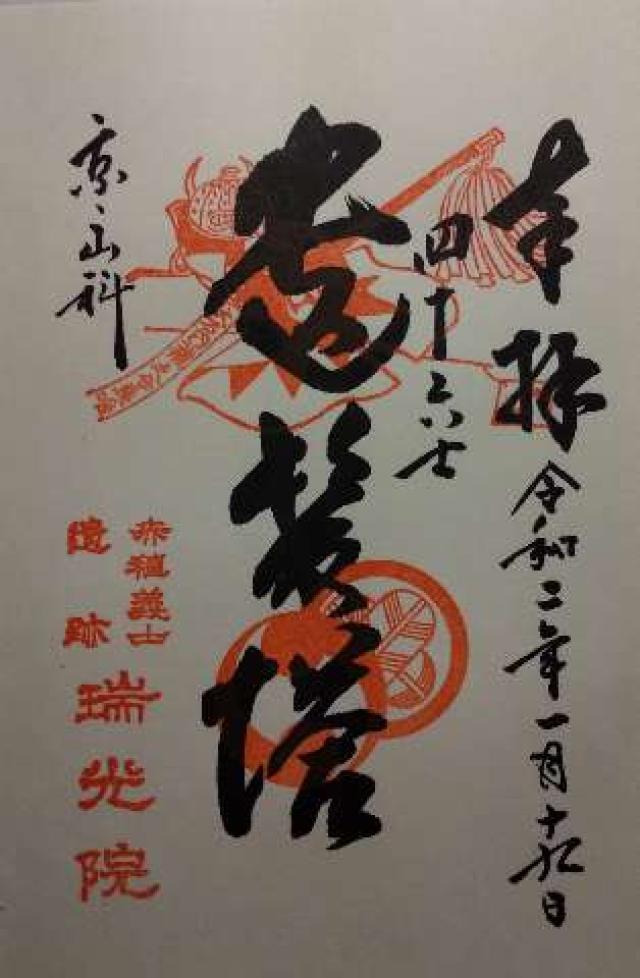 奉拝 令和二年一月十九日
四十六士
遺髪塔
京、山科
赤穂義士
遺跡
瑞光院